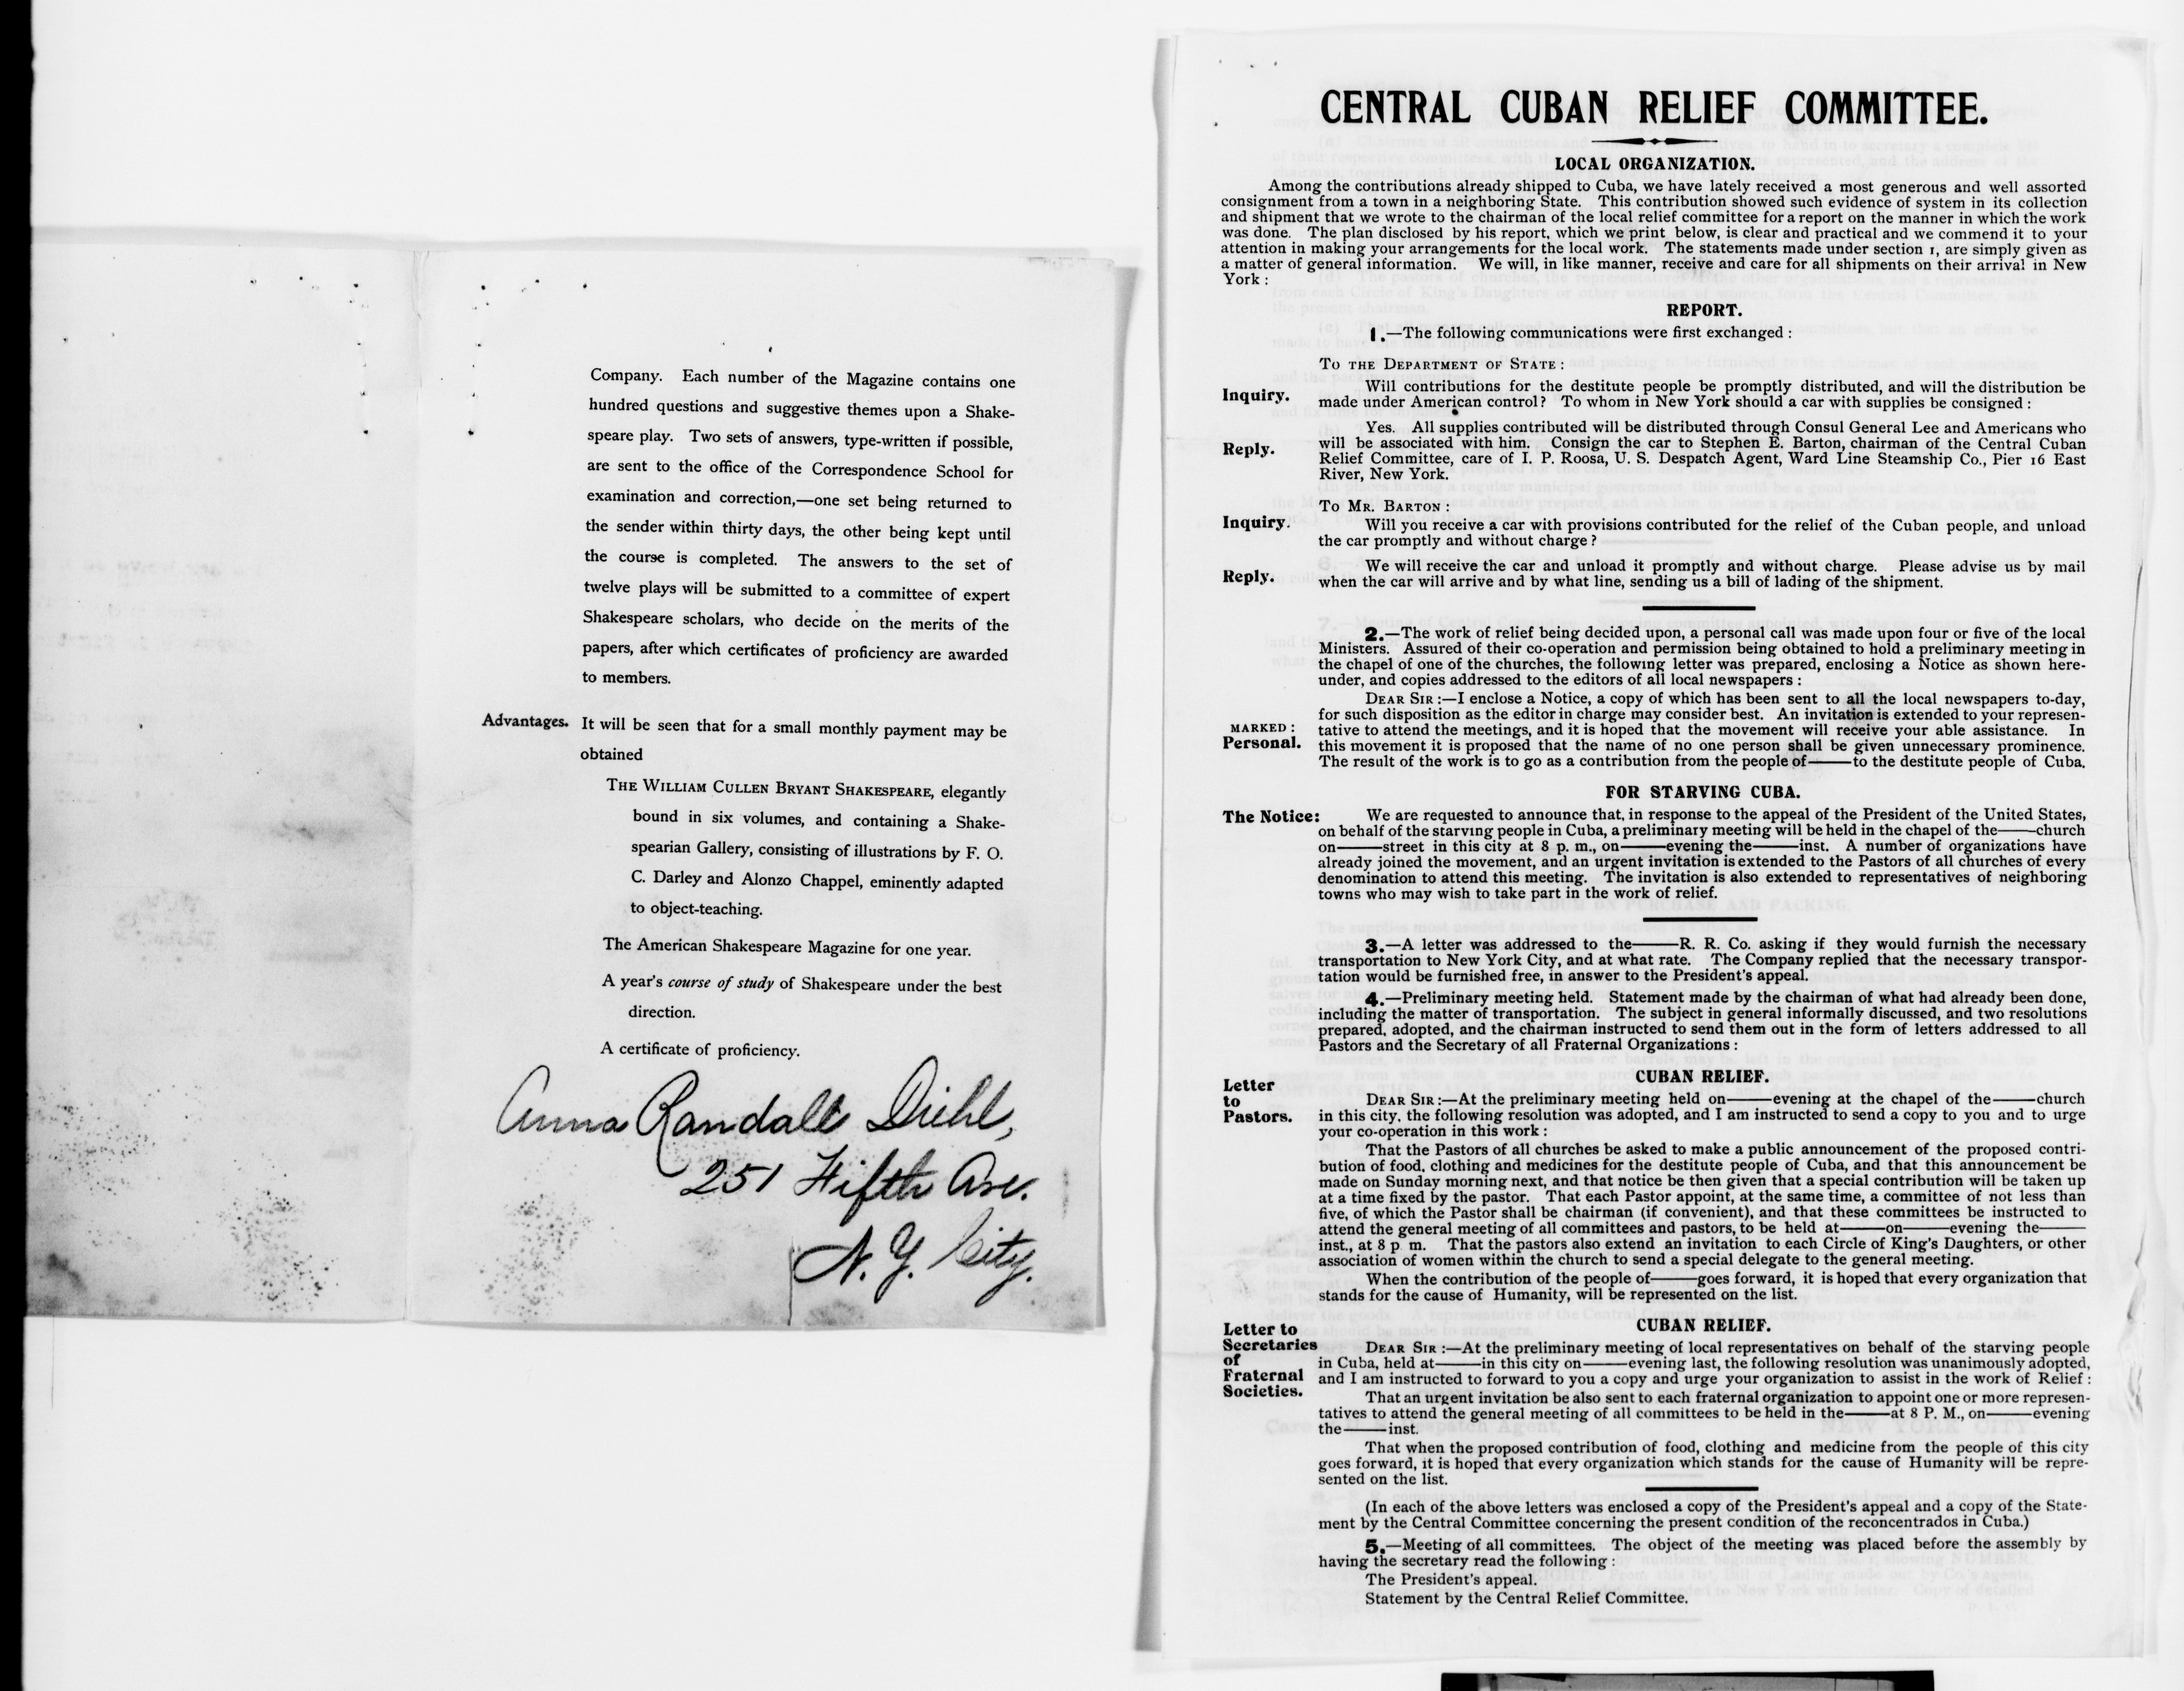 Company. Each number of the Magazine contains one
hundred questions and suggestive themes upon a Shake-
speare play. Two sets of answers, type-written if possible,
are sent to the office of the Correspondence School for
examination and correction,—one set being returned to
the sender within thirty days, the other being kept until
the course is completed. The answers to the set of
twelve plays will be submitted to a committee of expert
Shakespeare scholars, who decide on the merits of the
papers, after which certificates of proficiency are awarded
to members.
Advantages. It will be seen that for a small monthly payment may be
obtained
THE WILLIAM CULLEN BRYANT SHAKESPEARE, elegantly
bound in six volumes, and containing a Shake-
spearian Gallery, consisting of illustrations by F. O.
C. Darley and Alonzo Chappel, eminently adapted
to object-teaching.
The American Shakespeare Magazine for one year.
A year's course of study of Shakespeare under the best
direction.
A certificate of proficiency.
Anna Randall Diehl,
251 Fifth Ave.
N. Y. City.
CENTRAL CUBAN RELIEF COMMITTEE.
LOCAL ORGANIZATION.
Among the contributions already shipped to Cuba, we have lately received a most generous and well assorted
consignment from a town in a neighboring State. This contribution showed such evidence of system in its collection
and shipment that we wrote to the chairman of the local relief committee for a report on the manner in which the work
was done. The plan disclosed by his report, which we print below, is clear and practical and we commend it to your
attention in making your arrangements for the local work. The statements made under section 1, are simply given as
a matter of general information. We will, in like manner, receive and care for all shipments on their arrival in New
York :
REPORT.
1.—The following communications were first exchanged :
TO THE DEPARTMENT OF STATE :
Inquiry. Will contributions for the destitute people be promptly distributed, and will the distribution be
made under American control? To whom in New York should a car with supplies be consigned :
Reply. Yes. All supplies contributed will be distributed through Consul General Lee and Americans who
will be associated with him. Consign the car to Stephen E. Barton, chairman of the Central Cuban
Relief Committee, care of I. P. Roosa, U. S. Despatch Agent, Ward Line Steamship Co., Pier 16 East
River, New York.
TO MR. BARTON :
Inquiry. Will you receive a car with provisions contributed for the relief of the Cuban people, and unload
the car promptly and without charge ?
Reply. We will receive the car and unload it promptly and without charge. Please advise us by mail
when the car will arrive and by what line, sending us a bill of lading of the shipment.
2.—The work of relief being decided upon, a personal call was made upon four or five of the local
Ministers. Assured of their co-operation and permission being obtained to hold a preliminary meeting in
the chapel of one of the churches, the following letter was prepared, enclosing a Notice as shown here-
under, and copies addressed to the editors of all local newspapers :
MARKED :
Personal.
DEAR SIR :—I enclose a Notice, a copy of which has been sent to all the local newspapers to-day,
for such disposition as the editor in charge may consider best. An invitation is extended to your represen-
tative to attend the meetings, and it is hoped that the movement will receive your able assistance. In
this movement it is proposed that the name of no one person shall be given unnecessary prominence.
The result of the work is to go as a contribution from the people of——to the destitute people of Cuba.
FOR STARVING CUBA.
The Notice: We are requested to announce that, in response to the appeal of the President of the United States,
on behalf of the starving people in Cuba, a preliminary meeting will be held in the chapel of the——church
on——street in this city at 8 p. m., on——evening the——inst. A number of organizations have
already joined the movement, and an urgent invitation is extended to the Pastors of all churches of every
denomination to attend this meeting. The invitation is also extended to representatives of neighboring
towns who may wish to take part in the work of relief.
3.—A letter was addressed to the——R. R. Co. asking if they would furnish the necessary
transportation to New York City, and at what rate. The Company replied that the necessary transpor-
tation would be furnished free, in answer to the President's appeal.
4.—Preliminary meeting held. Statement made by the chairman of what had already been done,
including the matter of transportation. The subject in general informally discussed, and two resolutions
prepared, adopted, and the chairman instructed to send them out in the form of letters addressed to all
Pastors and the Secretary of all Fraternal Organizations :
CUBAN RELIEF.
Letter
to
Pastors.
DEAR SIR :—At the preliminary meeting held on——evening at the chapel of the——church
in this city, the following resolution was adopted, and I am instructed to send a copy to you and to urge
your co-operation in this work :
That the Pastors of all churches be asked to make a public announcement of the proposed contri-
bution of food, clothing and medicines for the destitute people of Cuba, and that this announcement be
made on Sunday morning next, and that notice be then given that a special contribution will be taken up
at a time fixed by the pastor. That each Pastor appoint, at the same time, a committee of not less than
five, of which the Pastor shall be chairman (if convenient), and that these committees be instructed to
attend the general meeting of all committees and pastors, to be held at——on——evening the——
inst., at 8 p m. That the pastors also extend an invitation to each Circle of King's Daughters, or other
association of women within the church to send a special delegate to the general meeting.
When the contribution of the people of——goes forward, it is hoped that every organization that
stands for the cause of Humanity, will be represented on the list.
CUBAN RELIEF.
Letter to
Secretaries
of
Fraternal
Societies.
DEAR SIR :—At the preliminary meeting of local representatives on behalf of the starving people
in Cuba, held at——in this city on——evening last, the following resolution was unanimously adopted,
and I am instructed to forward to you a copy and urge your organization to assist in the work of Relief :
That an urgent invitation be also sent to each fraternal organization to appoint one or more represen-
tatives to attend the general meeting of all committees to be held in the——at 8 P. M., on——evening
the——inst.
That when the proposed contribution of food, clothing and medicine from the people of this city
goes forward, it is hoped that every organization which stands for the cause of Humanity will be repre-
sented on the list.
(In each of the above letters was enclosed a copy of the President's appeal and a copy of the State-
ment by the Central Committee concerning the present condition of the reconcentrados in Cuba.)
5.—Meeting of all committees. The object of the meeting was placed before the assembly by
having the secretary read the following :
The President's appeal.
Statement by the Central Relief Committee.